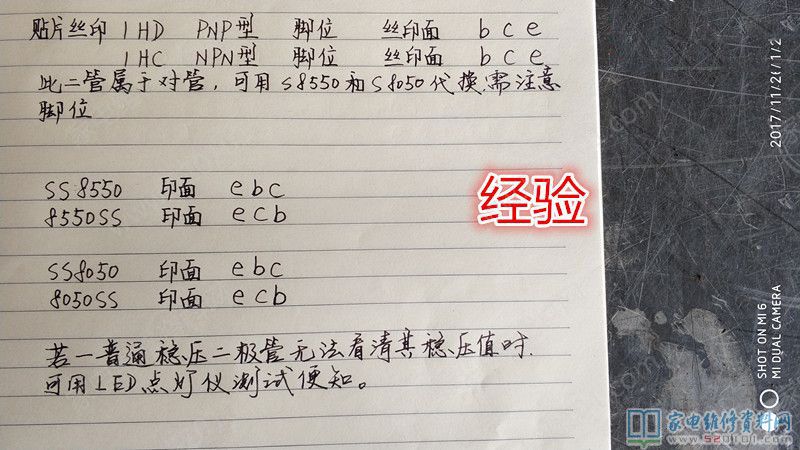 贴片丝印 1HD PNP型 脚位 丝印面 b c e
1HC NPN型 脚位 丝印面 b c e
此二管属于对管，可用S8550和S8050代换，需注意
脚位
SS8550 印面 e b c
8550SS 印面 e c b
经验
SS8050 印面 e b c
8050SS 印面 e c b
若一普通稳压二极管无法看清其稳压值时，
可用LED点灯仪测试便知。
2017/11/20/1/2
SHOT ON MI 6
MI DUAL CAMERA
家电维修资料网
www.520101.com